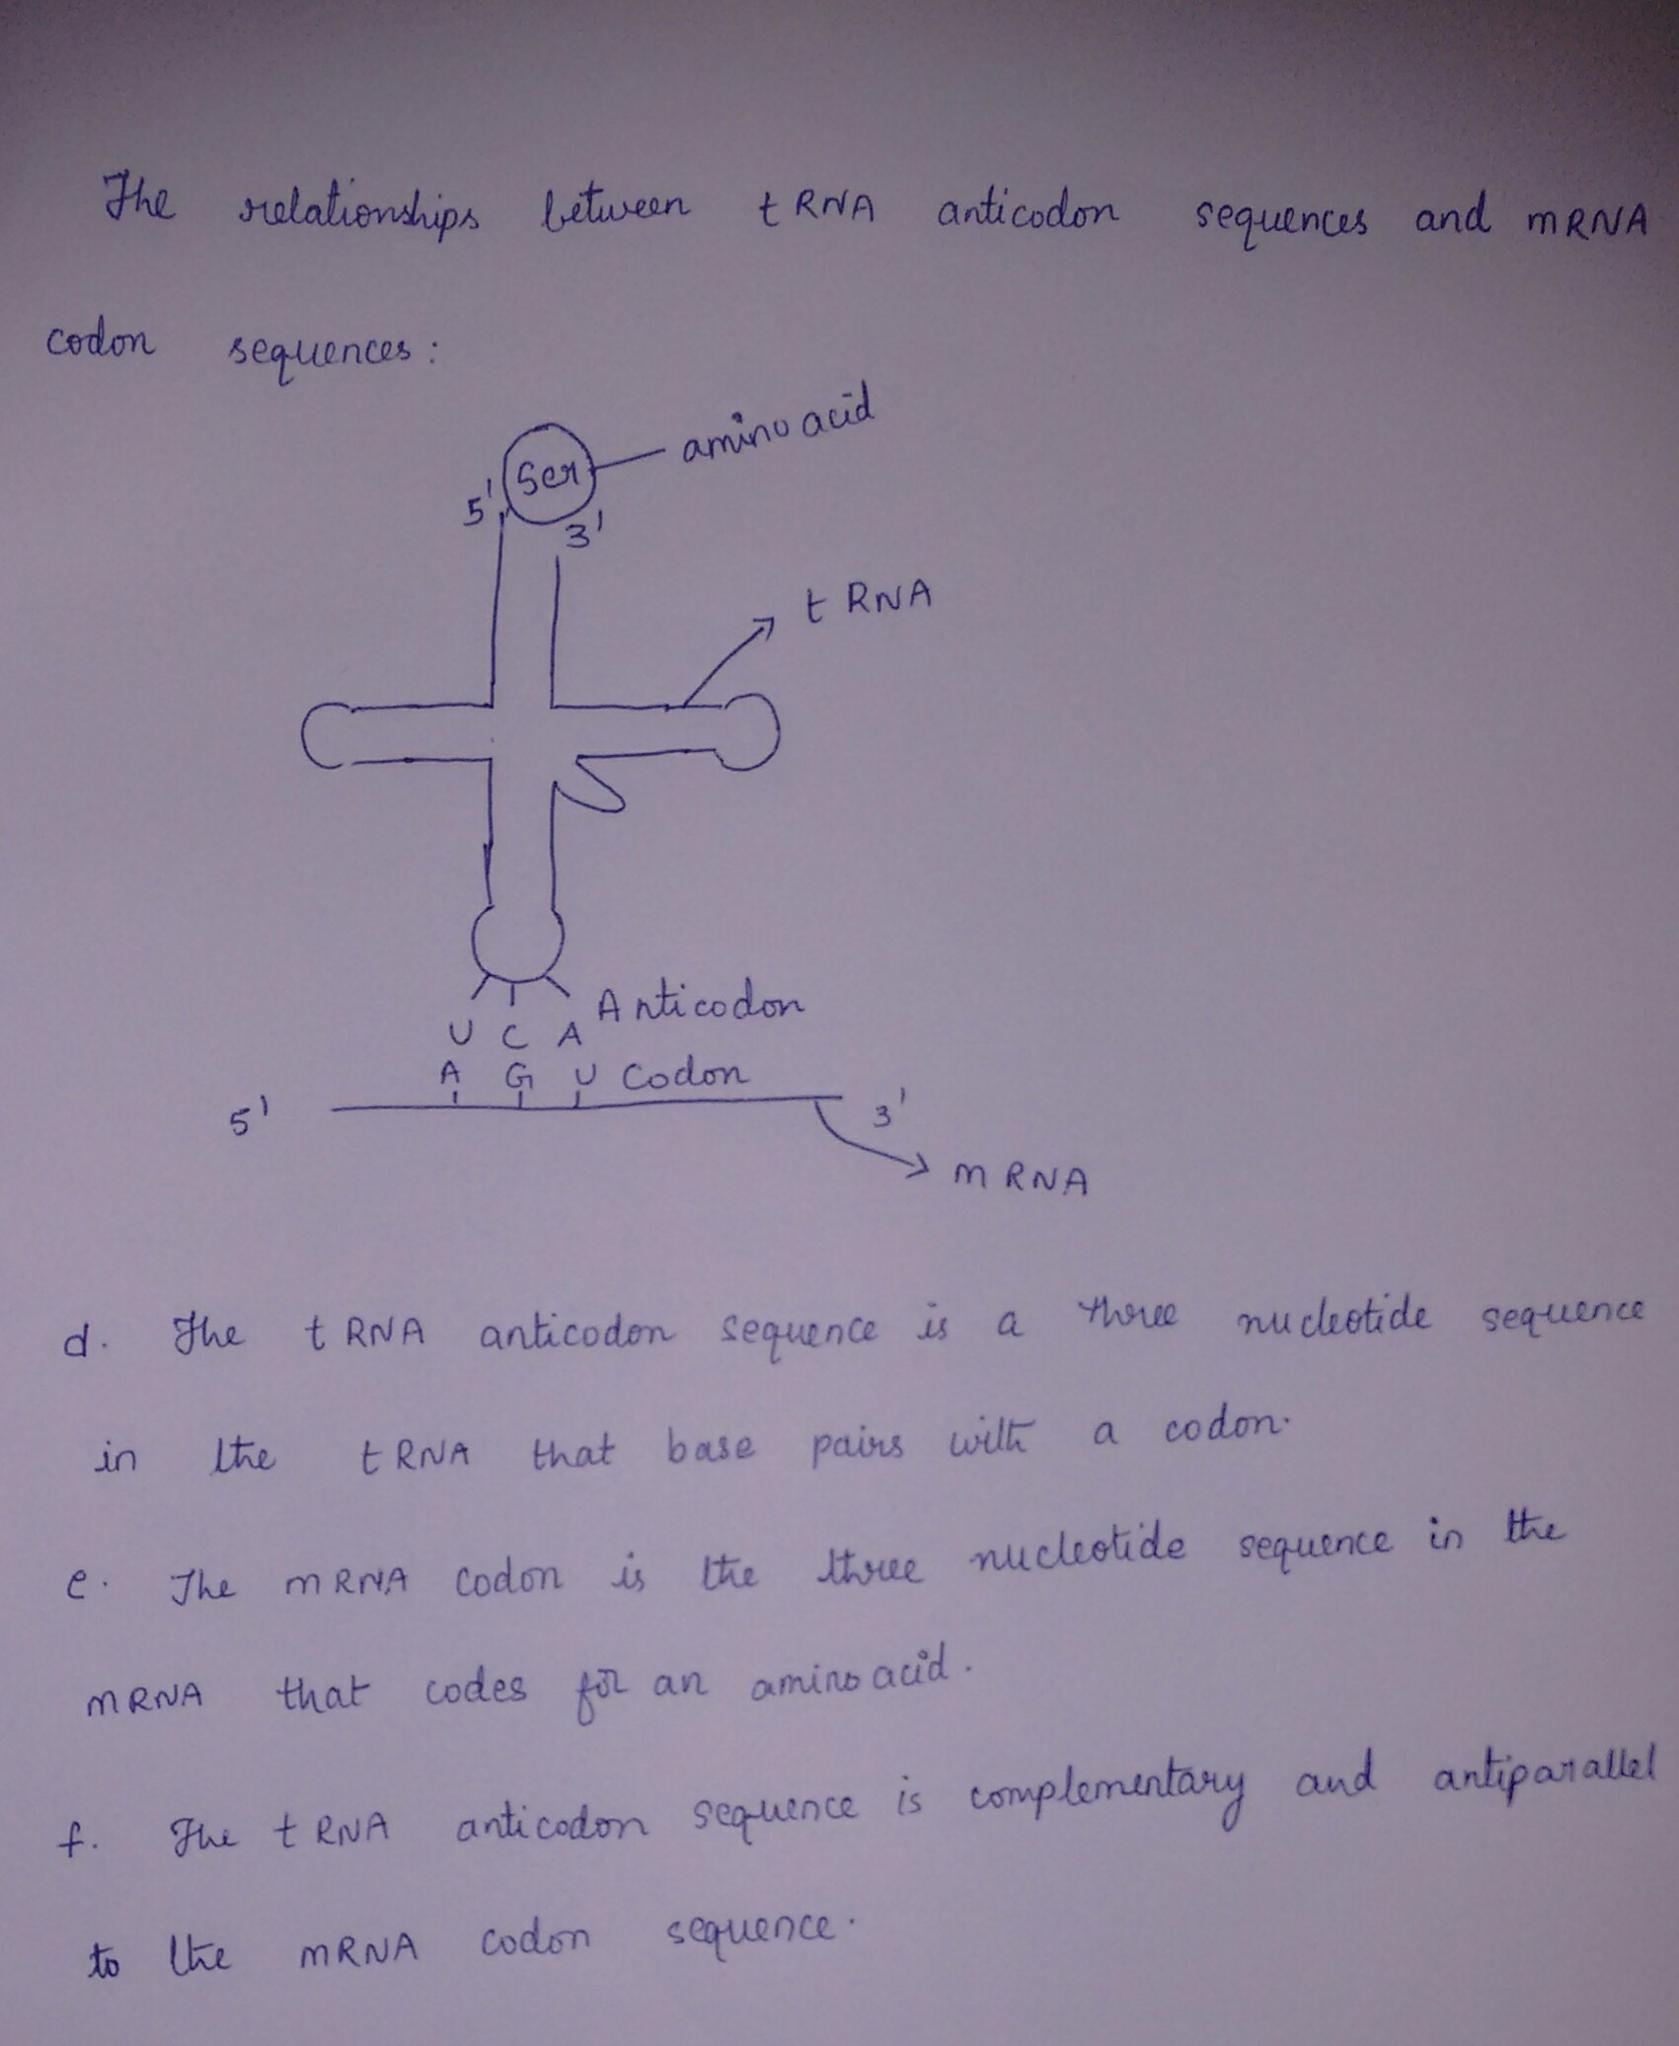 The relationships between tRNA anticodon sequences and mRNA
codon sequences:
Ser amino acid
5'
3'
tRNA
Anticodon
U C A
A G U Codon
5' 3'
mRNA
d. The tRNA anticodon sequence is a three nucleotide sequence
in the tRNA that base pairs with a codon.
e. The mRNA codon is the three nucleotide sequence in the
mRNA that codes for an amino acid.
f. The tRNA anticodon sequence is complementary and antiparallel
to the mRNA codon sequence.